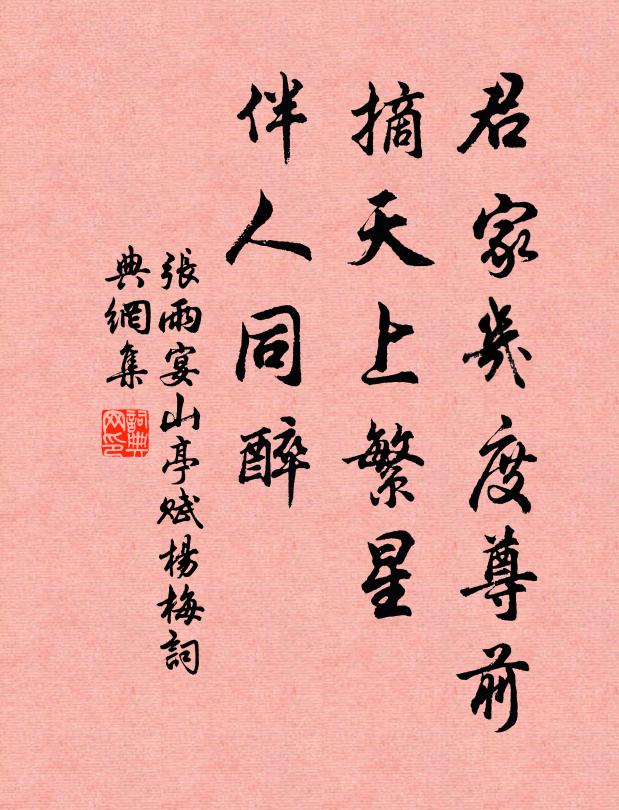 君家幾度尊前
摘天上繁星
伴人同醉
張雨宴山亭賦楊梅詞
典網集
詞典網印